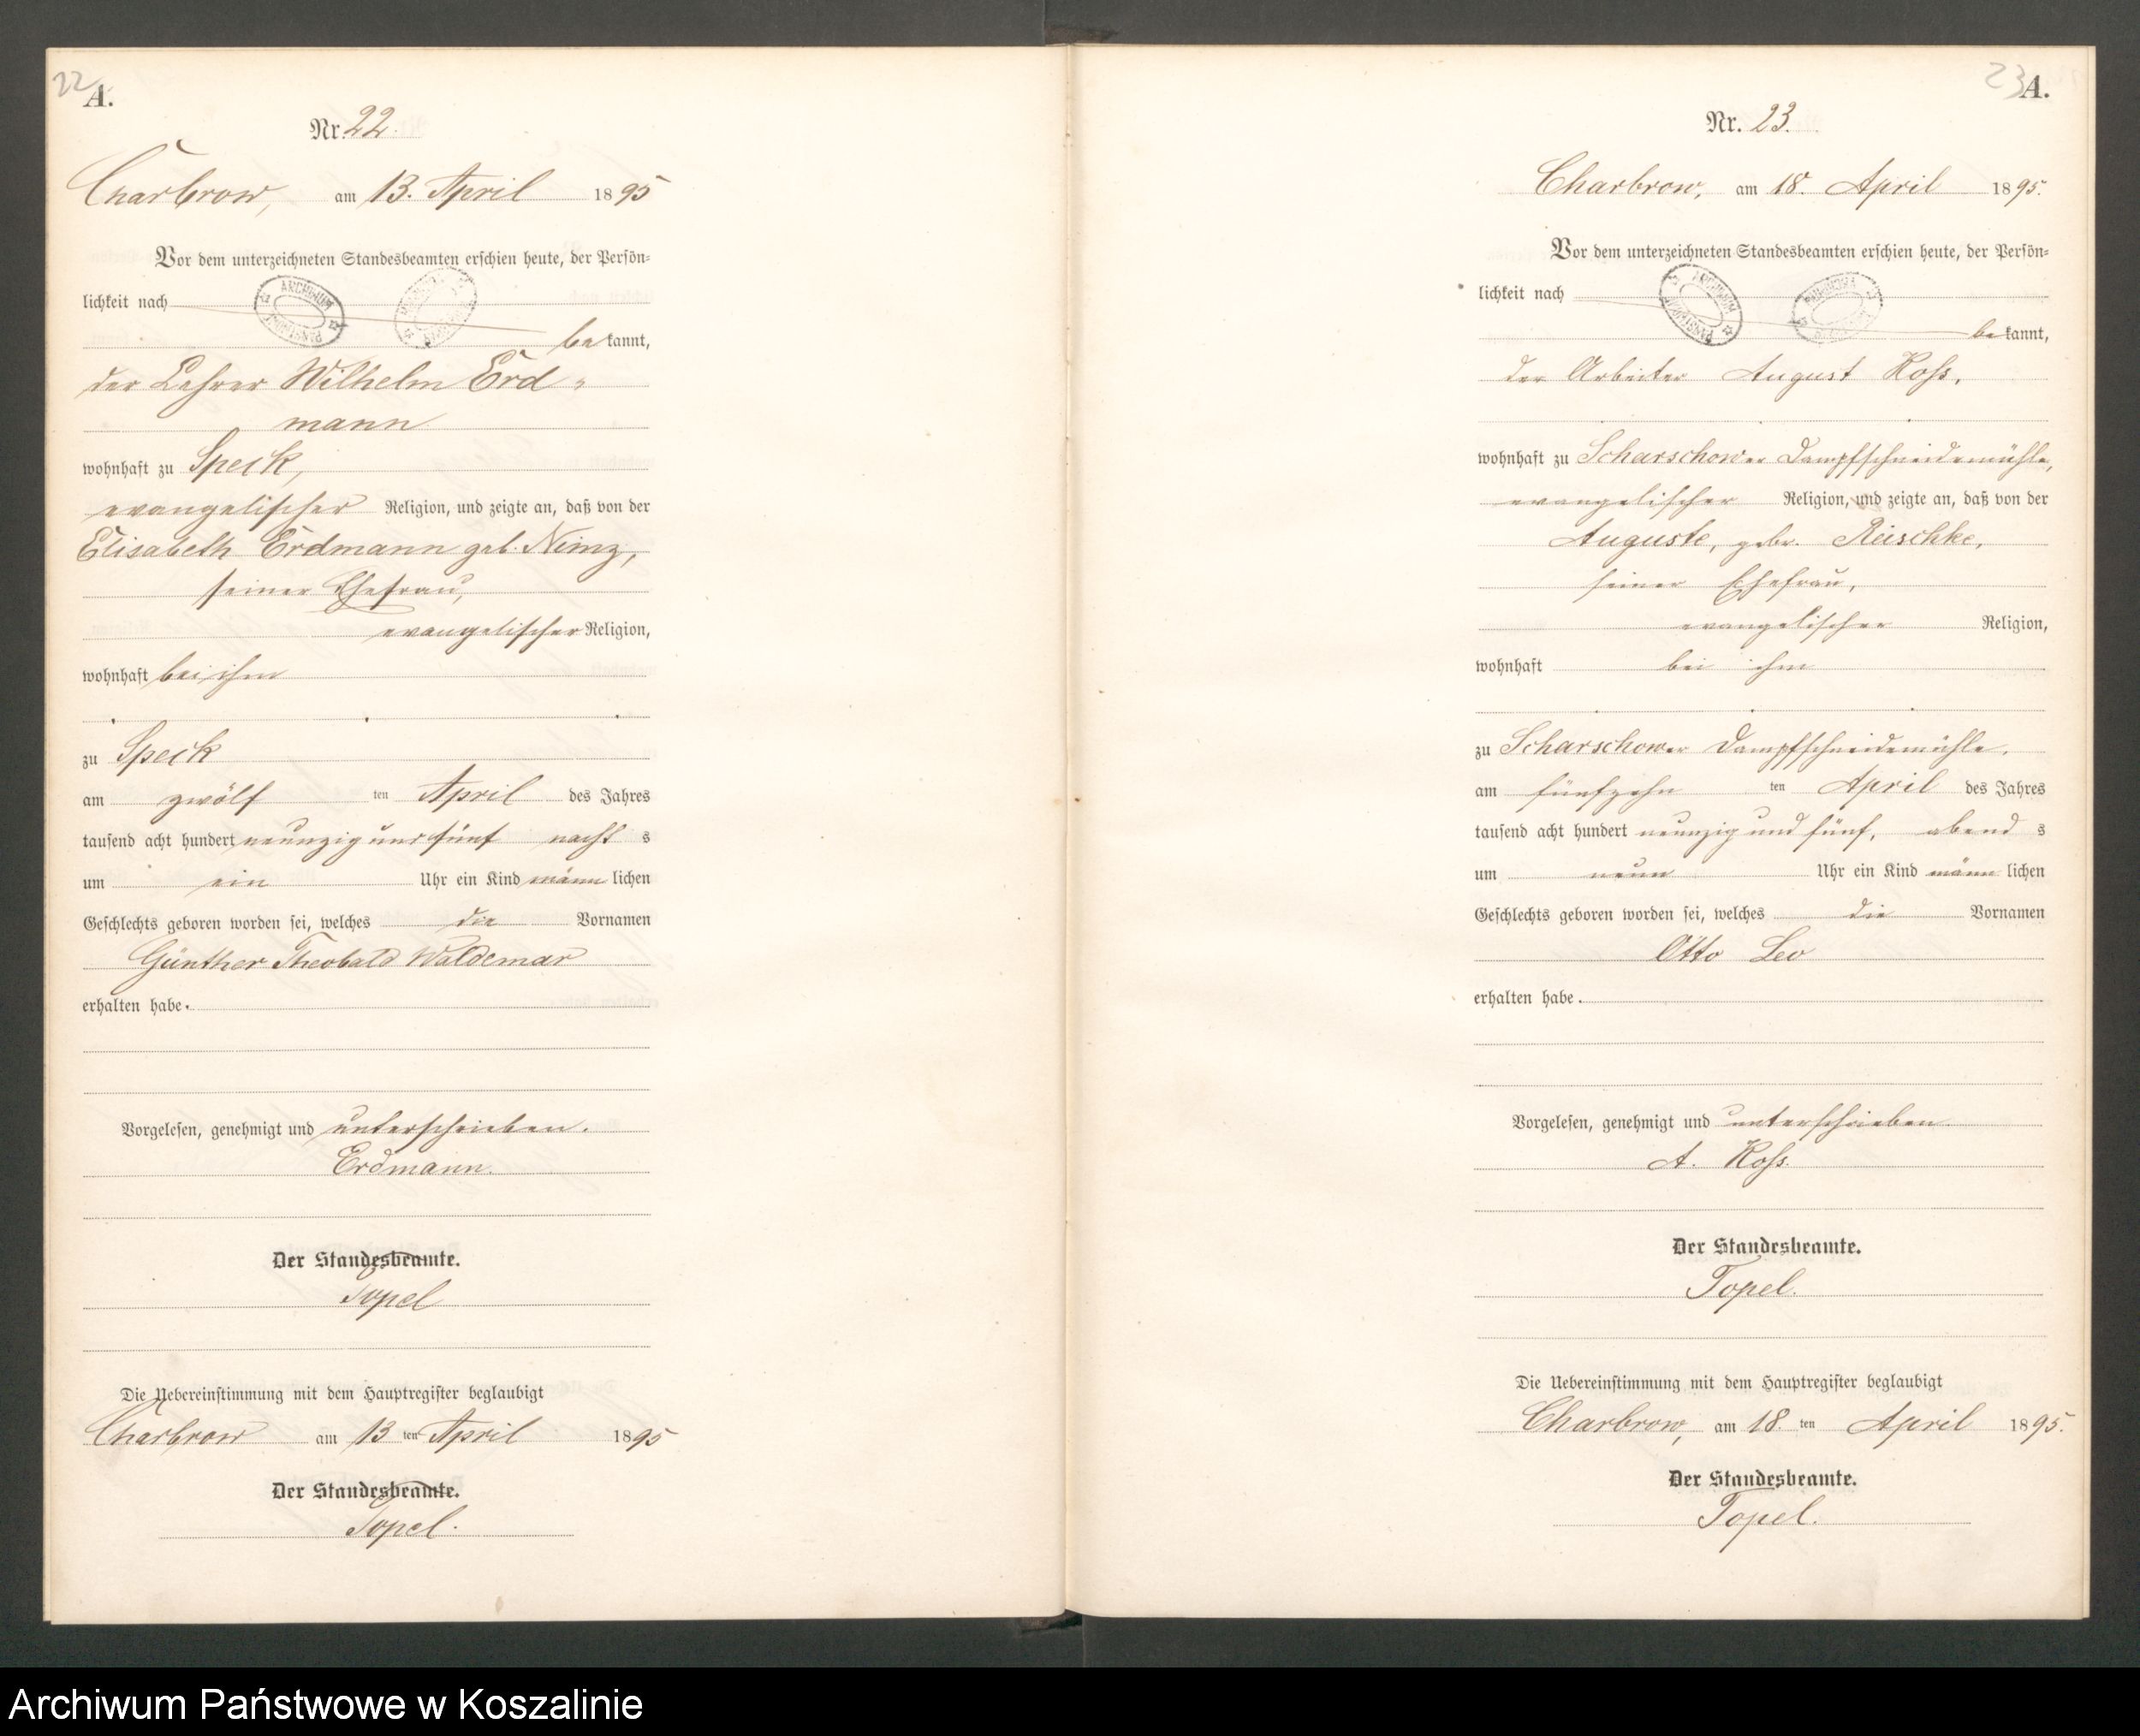 22
A.
Nr. 22.
Charbrow, am 13. April 1895
Vor dem unterzeichneten Standesbeamten erschien heute, der Persön-
lichkeit nach
bekannt,
der Lehrer Wilhelm Erd-
mann
wohnhaft zu Speck,
evangelischer Religion, und zeigte an, daß von der
Elisabeth Erdmann geb. Nimz,
seiner Ehefrau,
evangelischer Religion,
wohnhaft bei ihm
zu Speck
am zwölf ten April des Jahres
tausend acht hundert neunzig und fünf nachts
um ein Uhr ein Kind männlichen
Geschlechts geboren worden sei, welches die Vornamen
Günther Theobald Waldemar
erhalten habe.
Vorgelesen, genehmigt und unterschrieben.
Erdmann.
Der Standesbeamte.
Topel
Die Uebereinstimmung mit dem Hauptregister beglaubigt
Charbrow am 13 ten April 1895
Der Standesbeamte.
Topel.
23
A.
Nr. 23.
Charbrow, am 18. April 1895.
Vor dem unterzeichneten Standesbeamten erschien heute, der Persön-
lichkeit nach
bekannt,
der Arbeiter August Roß,
wohnhaft zu Scharschower Dampfschneidemühle,
evangelischer Religion, und zeigte an, daß von der
Auguste, gebr. Reischke,
seiner Ehefrau,
evangelischer Religion,
wohnhaft bei ihm
zu Scharschower Dampfschneidemühle,
am fünfzehn ten April des Jahres
tausend acht hundert neunzig und fünf, abends
um neun Uhr ein Kind männlichen
Geschlechts geboren worden sei, welches die Vornamen
Otto Leo
erhalten habe.
Vorgelesen, genehmigt und unterschrieben
A. Roß.
Der Standesbeamte.
Topel.
Die Uebereinstimmung mit dem Hauptregister beglaubigt
Charbrow, am 18. ten April 1895.
Der Standesbeamte.
Topel.
Archiwum Państwowe w Koszalinie